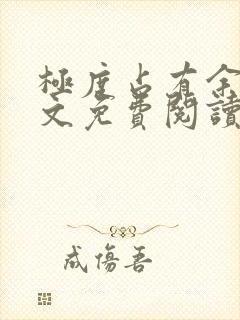 極度占有余
文免費閱讀
成傷吾